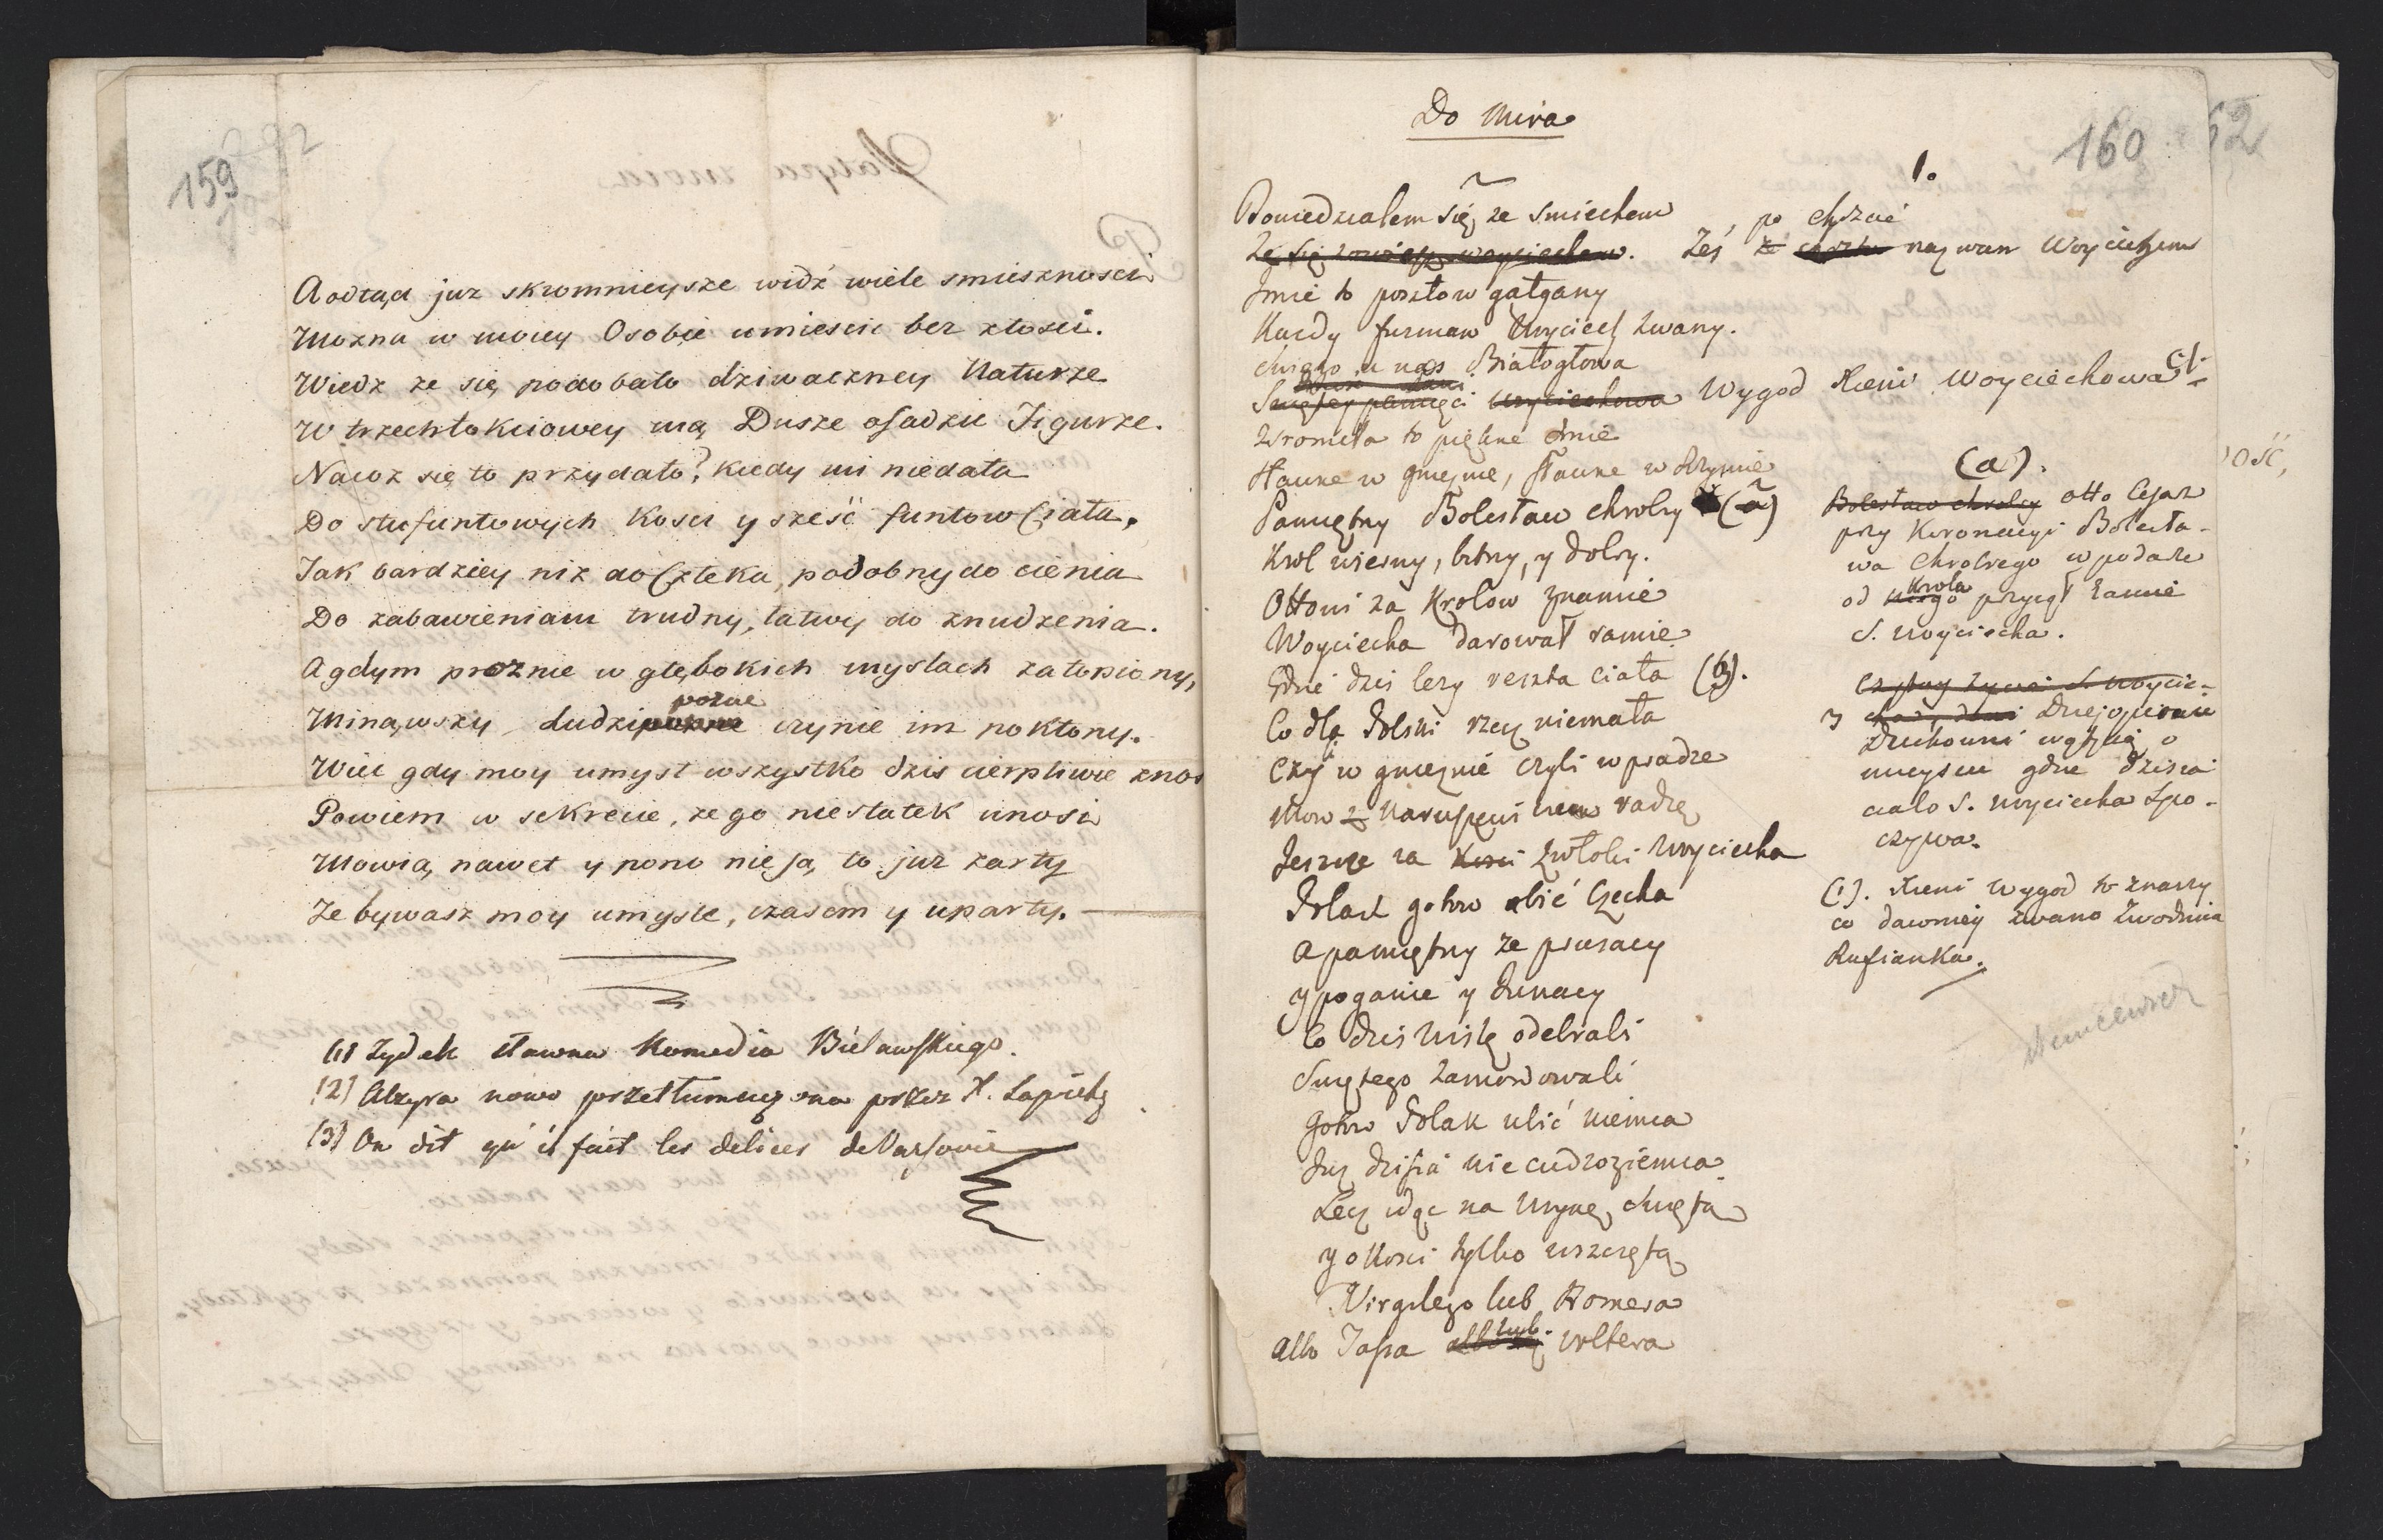 159
A odtąd juz skromnieysze widź wiele smiesznosci
Mozna w moiey Osobie umiescic bez złosci.
Wiedz ze się podobało dziwaczney Naturze
W trzechłokciowey mą Dusze osadzic Figurze.
Nacoz się to przydało? kiedy mi niedała
Do stufuntowych Kosci y sześć funtow Ciała,
Jak bardziey niz do Czleka, podobny do cienia
Do zabawieniam trudny, łatwy do znudzenia.
A gdym proznie w głębokich myslach zatopiony,
Minąwszy Ludzi pozne czynie im pokłony.
Wiec gdy moy umysł wszystko dzis cierpliwie znos
Powiem w sekrecie, ze go niestatek unosi
Mowią, nawet y pono nie są, to juz zarty
Ze bywasz moy umysle, czasem y uparty.
(1) Zydek sławna Komedia Bielawskiego.
(2) Alzyra nowo przetłumaczona przez X. Sapiehę
(3) On dit qu'il fait les delices de Varsovie
160
52
Do Mira
1.
Powiedzialem się ze smiechem
Zę się zowiesz woyciechem. Ześ po chrzcie nazwan Woyciechem
Jmie to posztow gałgany
Kazdy furman Woyciech zwany.
u nas Białogłowa
Swiętey pamięci Woyciechowa Wygod Xieni Woyciechowa (1)
Zsromiła to piękne Jmie
Sławne w gnieznie, sławne w Rzymie
Pamiętny Bolesław chrobry (a)
Krol wierny, bitny, y dobry.
Ottoni za Krolow znamie
Woyciecha darował ramie
Gdzie dzis lezy reszta ciała (b).
Co dla Polski rzecz niemała
Czy w gnieznie czyli w pradze
Mow z Naruszewiczem radzę
Jeszcze za Kosci zwłoki Woyciecha
Polak gotow obić Czecha
A pamiętny ze prusacy
y poganie y
Co dzis Wisłę odebrali
Swiętego zamordowali
Gotow Polak ubić niemca
Juz dzisia nie cudzoziemca
Lecz idąc na Woynę, swięta
y o Kosci tylko wszczętą
Virgilego lub Homera
Albo Tassa lub Woltera
(a).
Bolesław chrobry Otto Cesarz
przy Koronacyi Bolesła-
wa Chrobrego w podarze
od Krola przyął ramie
S. Woyciecha.
Czytay zywoi S. Woycie-
y Dziejopisowie
Duchowni wątpią o
mieyscu gdzie dzisia
ciało S. Woyciecha spo-
czywa.
(1). Xieni Wygod to znaczy
co dawniey zwano zwodnica
Rufianka.
Niemcewicz
ość,